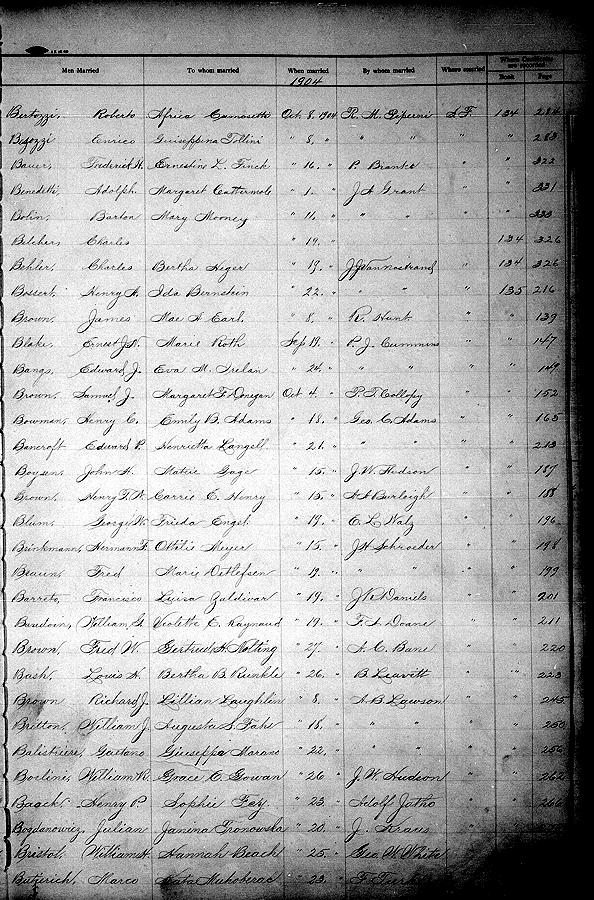 Men Married To whom married When married By whom married Where married Where Certificates are recorded
Book Page
1904
Bertozzi, Roberto Africa Oct. 8, 1904 R. M. Piperni S.F. 134 284
Bigozzi Enrico Guiseppina Tollini " 8, " " " " " 283
Bauer, Frederick H. Ernestine L. Finck " 16, " P. Branke " " 322
Benedetti, Adolph Margaret Cattermole " 1, " J A Grant " " 331
Bohn, Barton Mary Mooney " 11, " " " " " 333
Belcher, Charles " 19, " 134 326
Behler, Charles Bertha Heger " 19, " J J Van Nostrand " 134 326
Bossert, Henry A. Ida Bernstein " 22, " " " " 135 216
Brown, James Mae A Earl " 8, " R. Hunt " " 139
Blake, Ernest J. N. Marie Roth Sep 19, " P. J. Cummins " " 147
Bangs, Edward J. Eva M. Irelan " 24, " " " " " 149
Brown, Samuel J. Margaret F. Donegan Oct 4, " P. T. Collopy " " 152
Bowman, Henry C. Emily B. Adams " 18, " Geo. C. Adams " " 165
Bancroft Edward P. Henrietta Langell " 21, " " " " " 213
Boysen, John H. Matie Gage " 15, " J. W. Hudson " " 187
Brown, Henry Carrie E. Henry " 15, " Burleigh " " 188
Blum, George W. Frieda Engel " 19, " E. L. Walz " " 196
Brinkmann, Hermann F. Ottilie Meyer " 15, " J H Schroeder " " 198
Braun, Fred Marie Detlefsen " 19, " " " " " 199
Barreto, Francisco Luisa Zuldivar " 19, " Daniels " " 201
Baudoin, William G. Violette C. Raynaud " 19, " F. A. Doane " " 211
Brown, Fred W. Gertrude H. Nolting " 27, " A. C. Bane " " 220
Bash, Louis H. Bertha B Runkle " 26, " B Leavitt " " 223
Brown Richard J. Lillian Laughlin " 8, " A. B. Lawson " " 245
Britton, William J. Augusta S. Fahs " 18, " " " " " 250
Balistrieri, Gaetano Giuseppa Marano " 22, " " " " " 256
William Grace C. Gowan " 26 " J. W. Hudson " " 262
Baack Henry P. Sophie Fay " 23, " Adolf " " 266
Bogdanowicz, Julian Janina Tronowska " 20, " J. Kraus "
Bristol, William H. Hannah Beach " 25, " Geo. W. White "
Marco Kata " 23, " F.